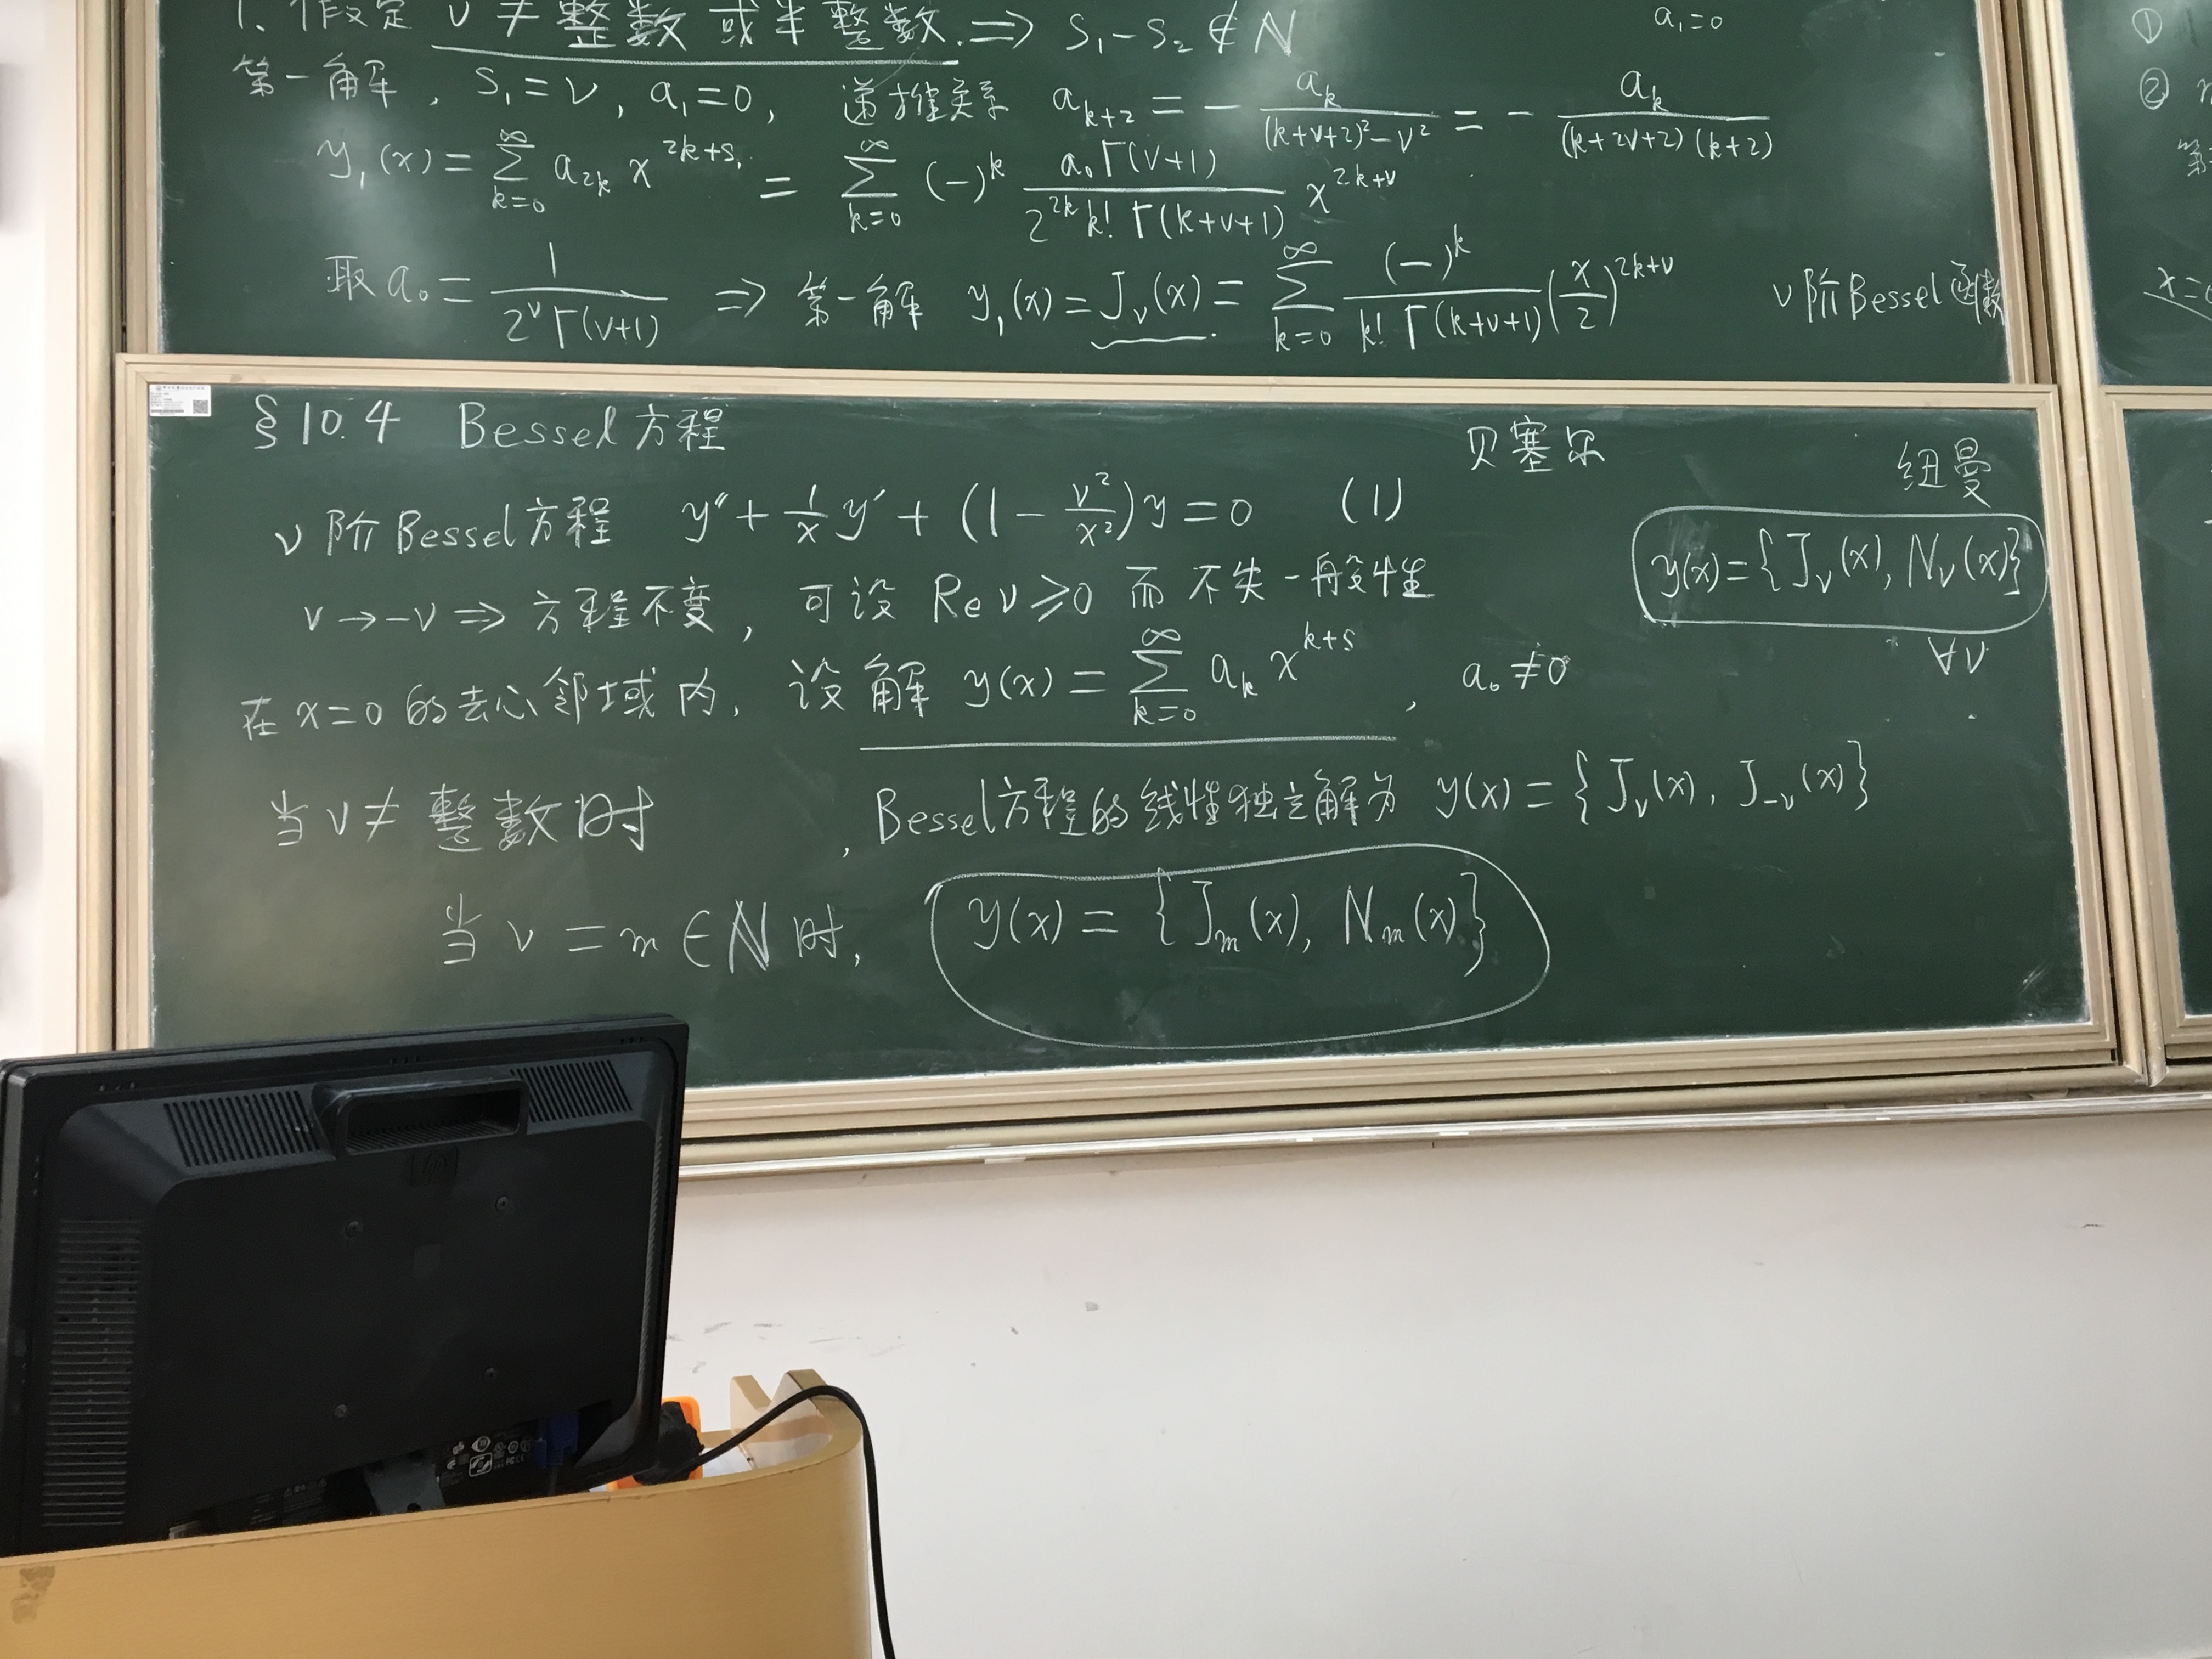 1. 假定 ν ≠ 整数或半整数. ⇒ S₁-S₂ ∉ ℕ
a₁=0
第一解, S₁=ν, a₁=0, 递推关系 a_{k+2} = - a_k / ((k+ν+2)²-ν²) = - a_k / ((k+2ν+2)(k+2))
y₁(x) = ∑_{k=0}^{∞} a_{2k} x^{2k+s₁} = ∑_{k=0}^{∞} (-)^k a₀Γ(ν+1) / (2^{2k} k! Γ(k+ν+1)) x^{2k+ν}
取 a₀ = 1 / (2^ν Γ(ν+1)) ⇒ 第一解 y₁(x) = J_ν(x) = ∑_{k=0}^{∞} (-)^k / (k! Γ(k+ν+1)) (x/2)^{2k+ν} ν阶Bessel函数
①
②
§10.4 Bessel方程
贝塞尔
纽曼
ν阶Bessel方程 y″ + (1/x) y′ + (1 - ν²/x²) y = 0 (1)
y(x) = {J_ν(x), N_ν(x)}
∀ν
ν → -ν ⇒ 方程不变, 可设 Re ν ≥ 0 而不失一般性
在 x=0 的去心邻域内, 设解 y(x) = ∑_{k=0}^{∞} a_k x^{k+s}, a₀ ≠ 0
当 ν ≠ 整数时, Bessel方程的线性独立解为 y(x) = {J_ν(x), J_{-ν}(x)}
当 ν = m ∈ ℕ 时, y(x) = {J_m(x), N_m(x)}